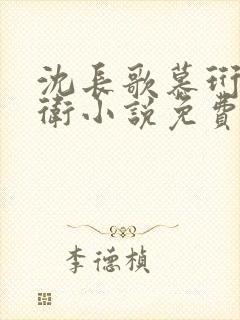 沈長歌慕珩
衛小說免費
李德楨